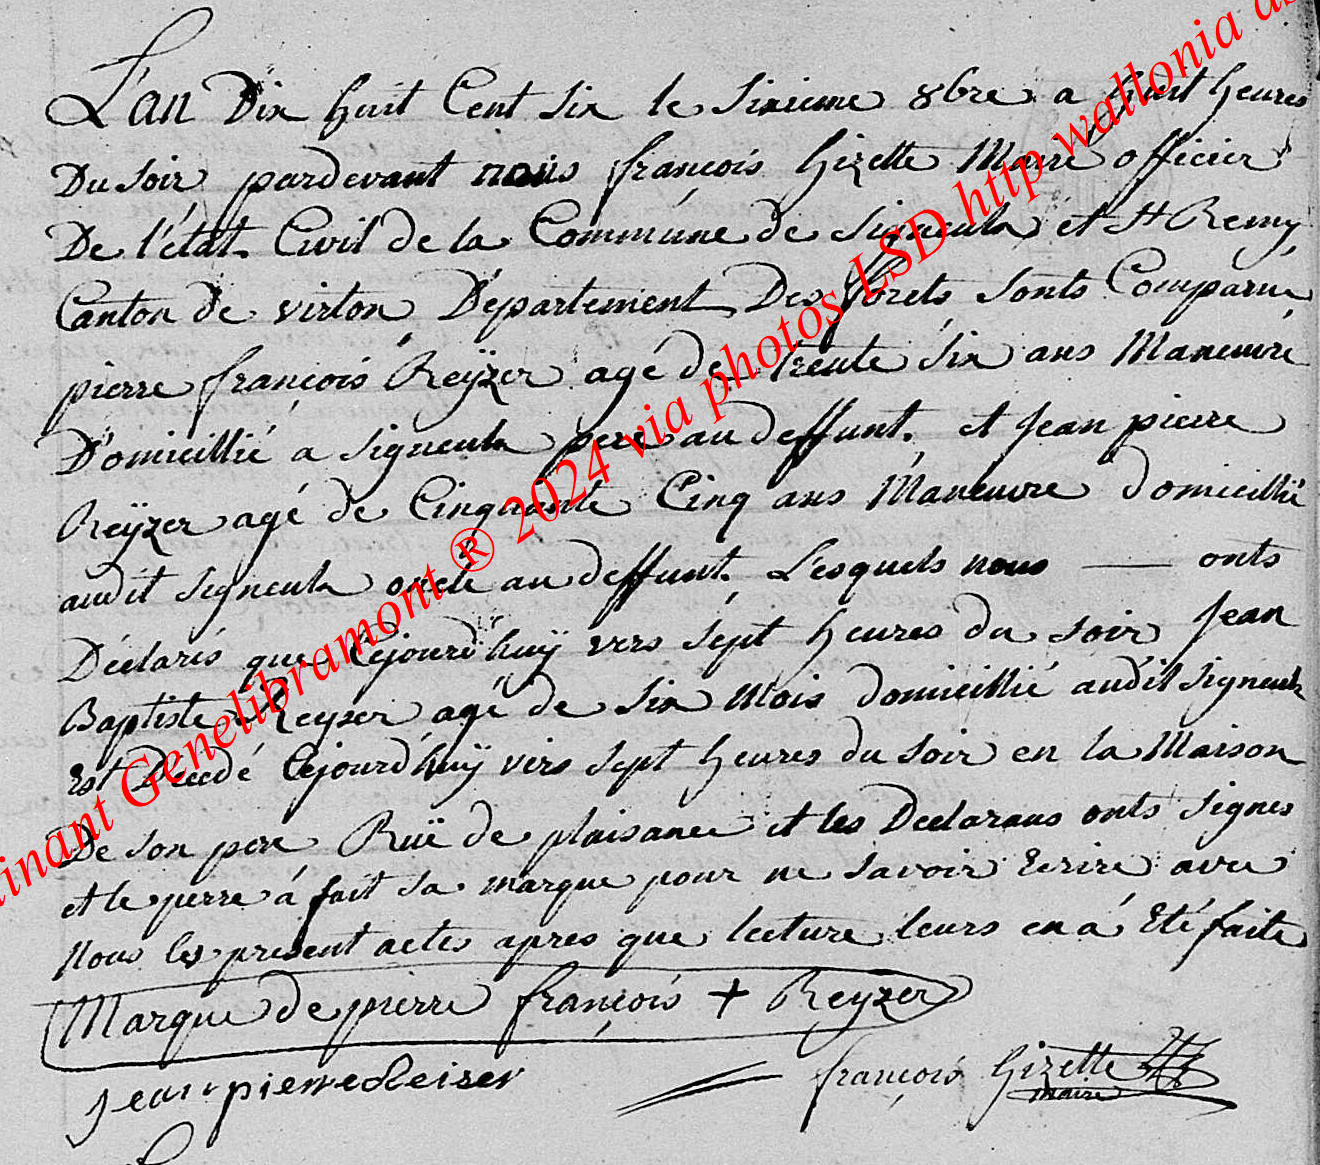 L'an Dix huit Cent six le sixieme 8bre a huit heures
Du soir pardevant nous françois Gizette Maire officier
De l'état Civil de la Commune de Signeulx et St Remy
Canton de virton Département Des forets sonts Comparu
pierre françois Reÿzer agé de trente six ans Maneuvre
D'omicillié a signeulx pere au deffunt. et Jean pierre
Reÿzer agé de Cinquante Cinq ans Maneuvre domicillié
audit signeulx oncle au deffunt. Lesquels nous — onts
Déclarés que Cejourd'huÿ vers sept heures du soir Jean
Baptiste Reyzer agé de six mois domicillié audit signeulx
Est Décedé Cejourd'huÿ vers sept heures du soir en la Maison
De son pere Ruë de plaisance et les Declarans onts signes
et le perre á fait sa marque pour ne savoir Ecrire avec
Nous les present actes apres que lecture leurs en á Eté faite
Marque de pierre françois + Reyzer
jean pierre Reiser françois Gizette
maire
inant Genelibramont ® 2024 via photos LSD http wallonia as